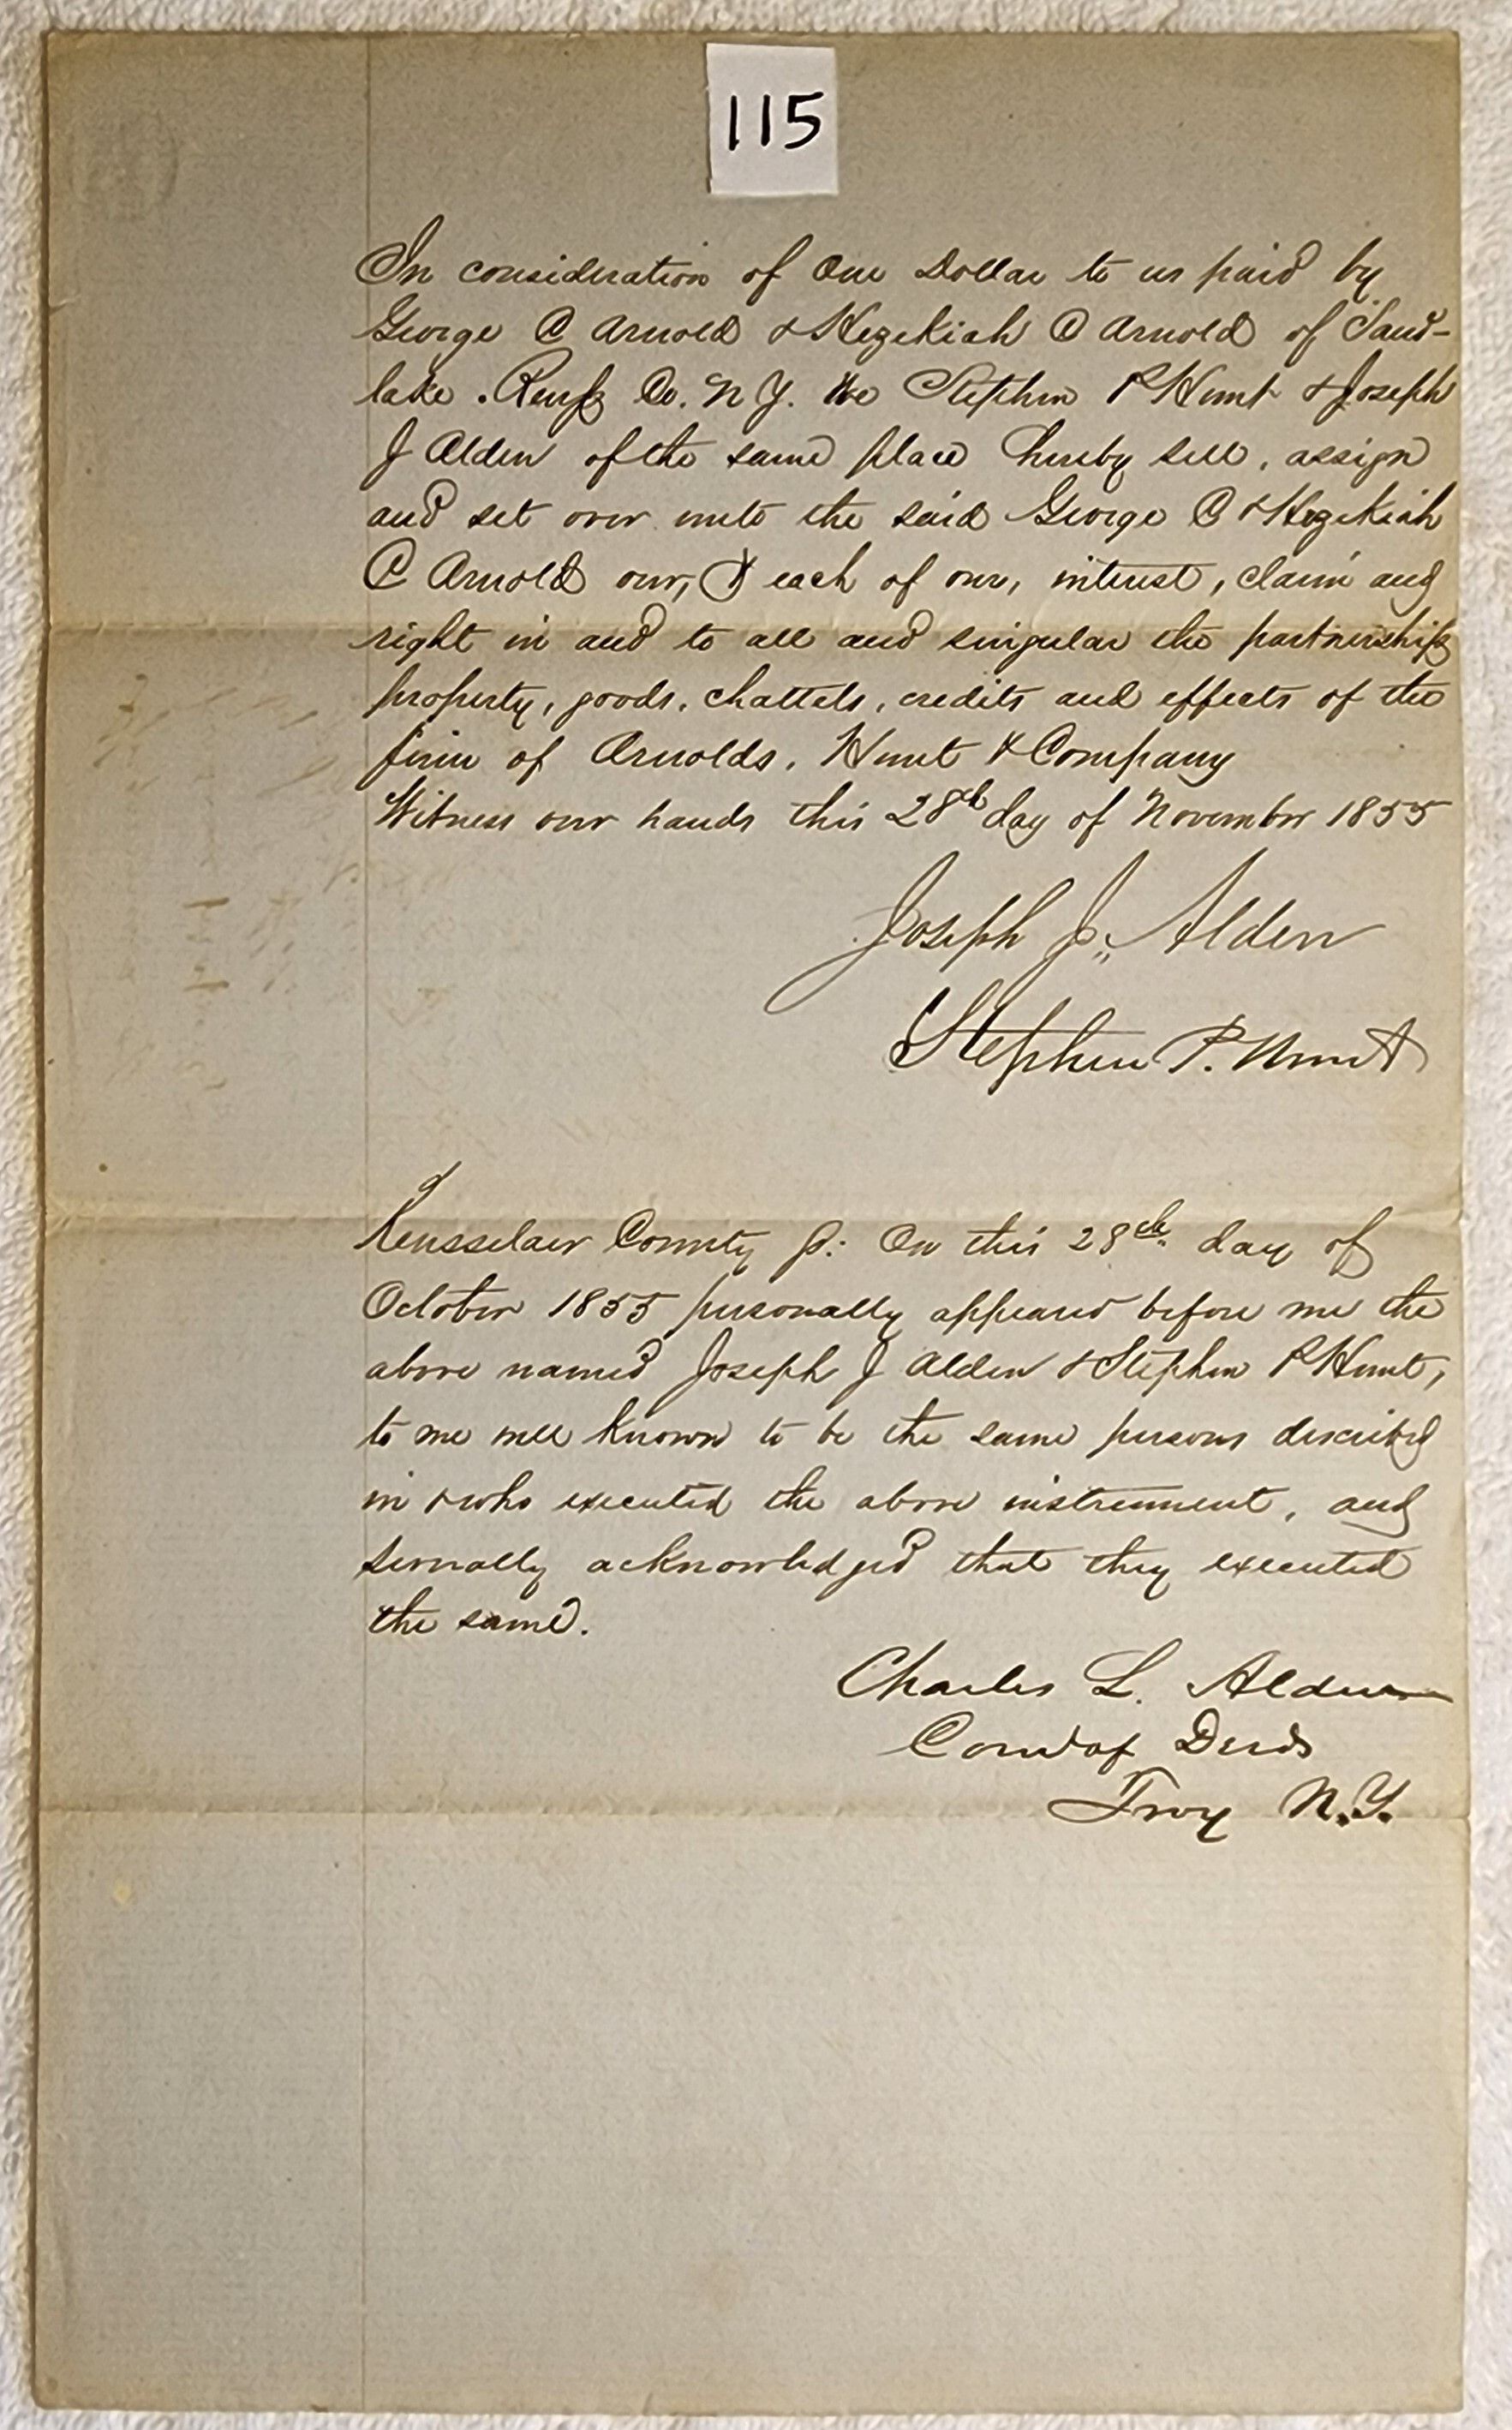 115
In consideration of One Dollar to us paid by
George C Arnold & Hezekiah C Arnold of Sand-
lake. Renss Co. N Y. We Stephen P Hunt & Joseph
J Alden of the same place hereby sell, assign
and set over unto the said George C & Hezekiah
C Arnold our, & each of our, interest, claim and
right in and to all and singular the partnership
property, goods, chattels, credits and effects of the
firm of Arnolds, Hunt & Company
Witness our hands this 28th day of November 1855
Joseph J. Alden
Stephen P. Hunt
Rensselaer County ss: On this 28th day of
October 1855 personally appeared before me the
above named Joseph J Alden & Stephen P Hunt,
to me well known to be the same persons described
in & who executed the above instrument, and
severally acknowledged that they executed
the same.
Charles L. Alden
Com of Deeds
Troy N.Y.